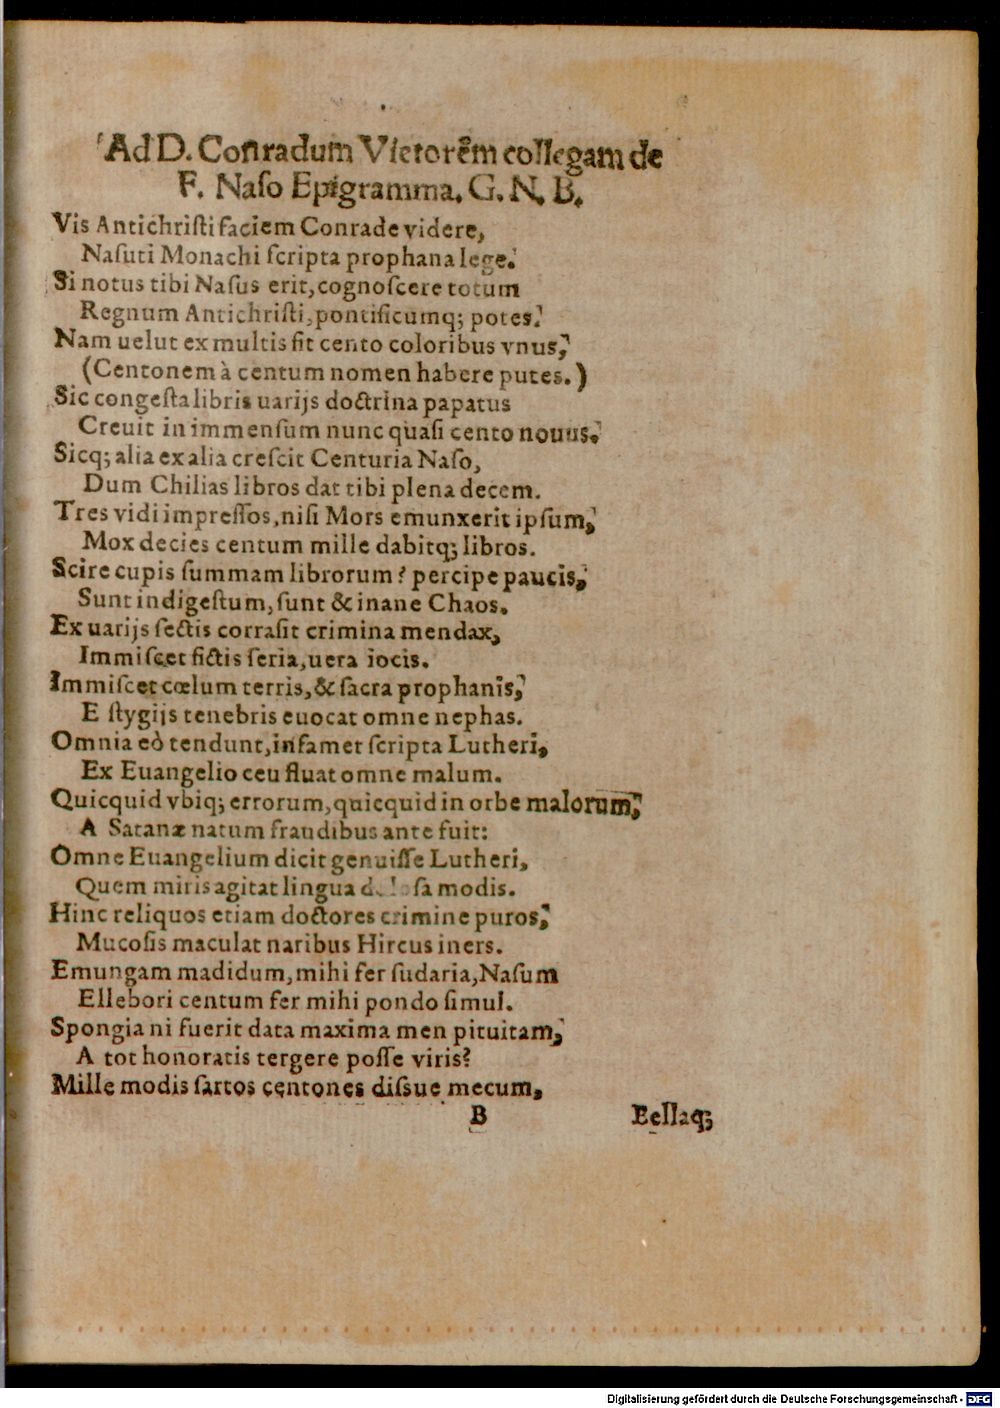 Ad D. Conradum Victorẽm collegam de
F. Naso Epigramma. G. N. B.
Vis Antichristi faciem Conrade videre,
Nasuti Monachi scripta prophana lege.
Si notus tibi Nasus erit, cognoscere totum
Regnum Antichristi, pontificumq; potes.
Nam uelut ex multis fit cento coloribus vnus,
(Centonem à centum nomen habere putes.)
Sic congesta libris uarijs doctrina papatus
Creuit in immensum nunc quasi cento nouus.
Sicq; alia ex alia crescit Centuria Naso,
Dum Chilias libros dat tibi plena decem.
Tres vidi impressos, nisi Mors emunxerit ipsum,
Mox decies centum mille dabitq; libros.
Scire cupis summam librorum? percipe paucis,
Sunt indigestum, sunt & inane Chaos.
Ex uarijs sectis corrasit crimina mendax,
Immiscet fictis seria, uera iocis.
Immiscet cœlum terris, & sacra prophanis,
E stygijs tenebris euocat omne nephas.
Omnia eò tendunt, infamet scripta Lutheri,
Ex Euangelio ceu fluat omne malum.
Quicquid vbiq; errorum, quicquid in orbe malorum,
A Satanæ natum fraudibus ante fuit:
Omne Euangelium dicit genuisse Lutheri,
Quem miris agitat lingua modis.
Hinc reliquos etiam doctores crimine puros,
Mucosis maculat naribus Hircus iners.
Emungam madidum, mihi fer sudaria, Nasum
Ellebori centum fer mihi pondo simul.
Spongia ni fuerit data maxima men pituitam,
A tot honoratis tergere posse viris?
Mille modis sartos centones dissue mecum,
B Bellaq;
Digitalisierung gefördert durch die Deutsche Forschungsgemeinschaft - DFG